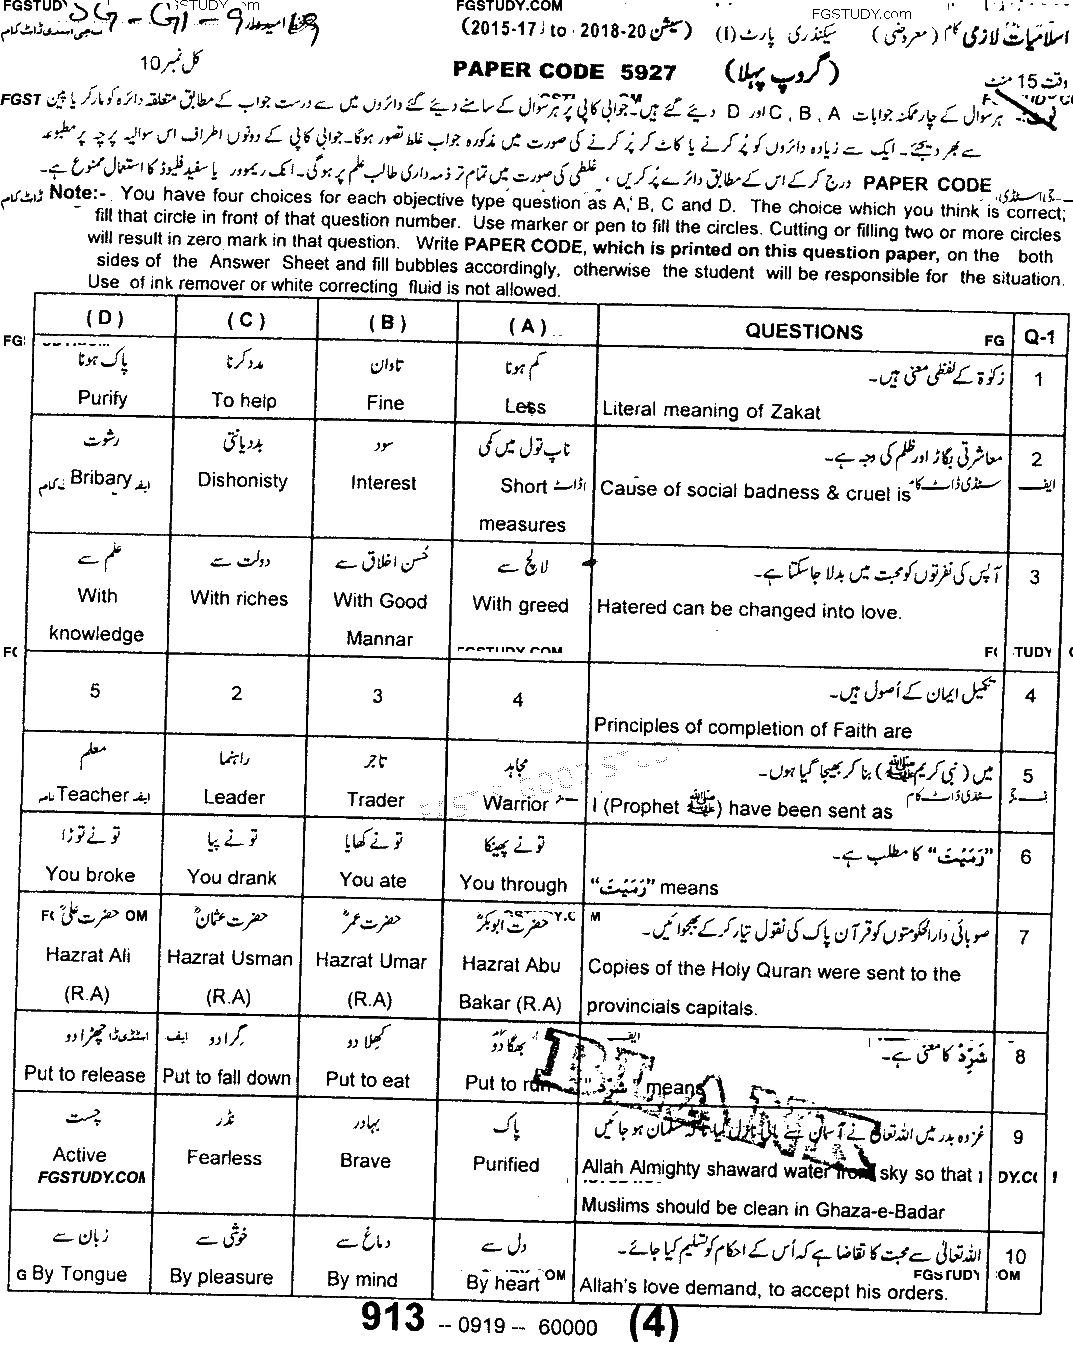 FGSTUDY.COM
FGSTUDY.COM
SG - G1 - 9
اسلامیات لازمی (معروضی) سیکنڈری پارٹ (I) (سیشن 20-2018 to 17-2015)
وقت 15 منٹ (گروپ پہلا) PAPER CODE 5927 کل نمبر 10
ہر سوال کے چار ممکنہ جوابات A ، B ، C اور D دیئے گئے ہیں۔ جوابی کاپی پر ہر سوال کے سامنے دیئے گئے دائروں میں سے درست جواب کے مطابق متعلقہ دائرہ کو مارکر یا پین
سے بھر دیجئے۔ ایک سے زیادہ دائروں کو پُر کرنے یا کاٹ کر پُر کرنے کی صورت میں مذکورہ جواب غلط تصور ہوگا۔ جوابی کاپی کے دونوں اطراف اس سوالیہ پرچہ پر مطبوعہ
PAPER CODE درج کر کے اس کے مطابق دائرے پُر کریں ، غلطی کی صورت میں تمام تر ذمہ داری طالب علم پر ہوگی۔ انک ریموور یا سفید فلیوڈ کا استعمال ممنوع ہے۔
Note:- You have four choices for each objective type question as A, B, C and D. The choice which you think is correct;
fill that circle in front of that question number. Use marker or pen to fill the circles. Cutting or filling two or more circles
will result in zero mark in that question. Write PAPER CODE, which is printed on this question paper, on the both
sides of the Answer Sheet and fill bubbles accordingly, otherwise the student will be responsible for the situation.
Use of ink remover or white correcting fluid is not allowed.
(D) (C) (B) (A) QUESTIONS Q-1
پاک ہونا مدد کرنا تاوان کم ہونا زکوٰۃ کے لفظی معنی ہیں۔ 1
Purify To help Fine Less Literal meaning of Zakat
رشوت بددیانتی سود ناپ تول میں کمی معاشرتی بگاڑ اور ظلم کی وجہ ہے۔ 2
Bribary Dishonisty Interest Short Cause of social badness & cruel is
measures
علم سے دولت سے حُسن اخلاق سے لالچ سے آپس کی نفرتوں کو محبت میں بدلا جاسکتا ہے۔ 3
With With riches With Good With greed Hatered can be changed into love.
knowledge Mannar
5 2 3 4 تکمیل ایمان کے اُصول ہیں۔ 4
Principles of completion of Faith are
معلم راہنما تاجر مجاہد میں (نبی کریم ﷺ) بنا کر بھیجا گیا ہوں۔ 5
Teacher Leader Trader Warrior I (Prophet ﷺ) have been sent as
تو نے توڑا تو نے پیا تو نے کھایا تو نے پھینکا "رَمَیْتَ" کا مطلب ہے۔ 6
You broke You drank You ate You through "رَمَیْتَ" means
حضرت علیؓ حضرت عثمانؓ حضرت عمرؓ حضرت ابوبکرؓ صوبائی دارالحکومتوں کو قرآن پاک کی نقول تیار کر کے بھجوائیں۔ 7
Hazrat Ali Hazrat Usman Hazrat Umar Hazrat Abu Copies of the Holy Quran were sent to the
(R.A) (R.A) (R.A) Bakar (R.A) provincials capitals.
چھڑا دو گرا دو کھلا دو بھگا دو شَرِّدْ کا معنی ہے۔ 8
Put to release Put to fall down Put to eat Put to run "شَرِّدْ" means
چست نڈر بہادر پاک غزوہ بدر میں اللہ تعالیٰ نے آسمان سے پانی نازل کیا تاکہ مسلمان ہو جائیں 9
Active Fearless Brave Purified Allah Almighty shaward water from sky so that
FGSTUDY.COM Muslims should be clean in Ghaza-e-Badar
زبان سے خوشی سے دماغ سے دل سے اللہ تعالیٰ سے محبت کا تقاضا ہے کہ اُس کے احکام کو تسلیم کیا جائے۔ 10
By Tongue By pleasure By mind By heart Allah's love demand, to accept his orders.
913 -- 0919 -- 60000 (4)